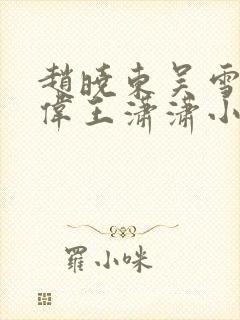 趙曉東吳雪
偉王瀟瀟小
羅小咪